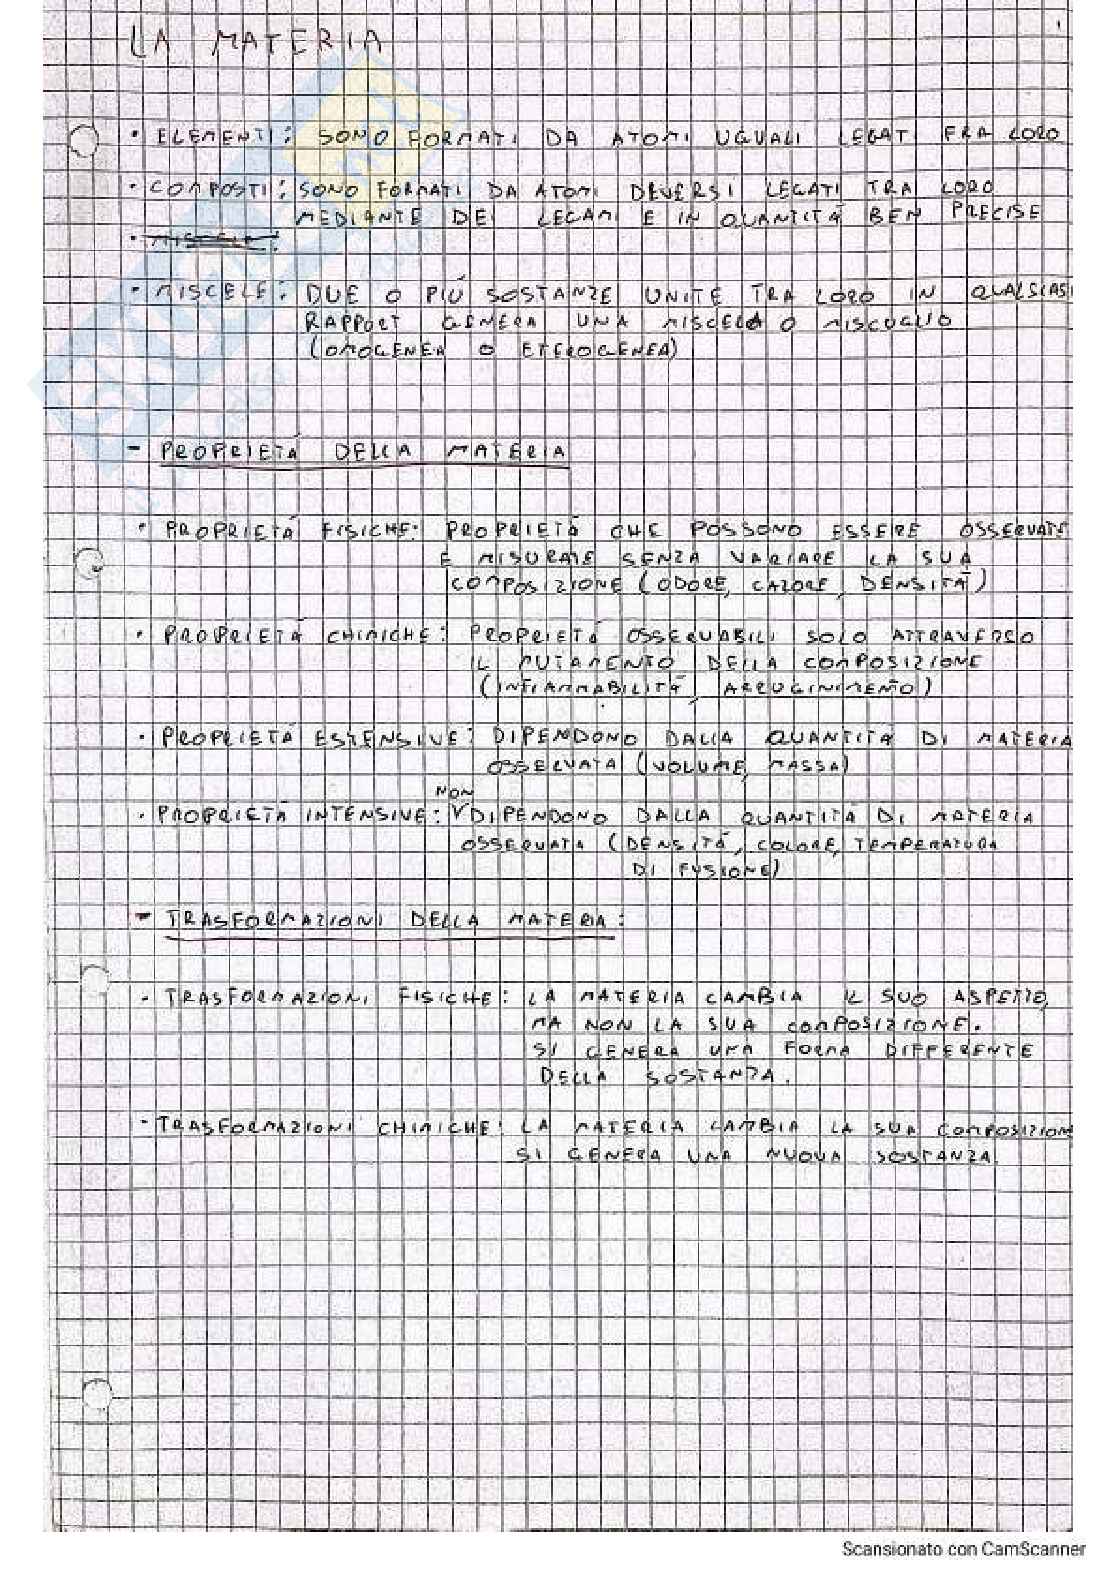 LA MATERIA
1
• ELEMENTI: SONO FORMATI DA ATOMI UGUALI LEGATI FRA LORO
• COMPOSTI: SONO FORMATI DA ATOMI DEVERSI LEGATI TRA LORO
MEDIANTE DEI LEGAMI E IN QUANTITÀ BEN PRECISE
• MISCELE:
• MISCELE: DUE O PIÚ SOSTANZE UNITE TRA LORO IN QUALSIASI
RAPPORT GENERA UNA MISCELA O MISCUGLIO
(OMOGENEA O ETEROGENEA)
- PROPRIETÁ DELLA MATERIA
• PROPRIETÁ FISICHE: PROPRIETÁ CHE POSSONO ESSERE OSSERVATE
E MISURATE SENZA VARIARE LA SUA
COMPOSIZIONE (ODORE, CALORE, DENSITÁ)
• PROPRIETÁ CHIMICHE: PROPRIETÁ OSSERVABILI SOLO ATTRAVERSO
IL MUTAMENTO DELLA COMPOSIZIONE
(INFIAMMABILITÁ, ARRUGINIMENTO)
• PROPRIETÁ ESTENSIVE: DIPENDONO DALLA QUANTITÁ DI MATERIA
OSSERVATA (VOLUME, MASSA)
NON
• PROPRIETÁ INTENSIVE: DIPENDONO DALLA QUANTITÁ DI MATERIA
OSSERVATA (DENSITÁ, COLORE, TEMPERATURA
DI FUSIONE)
- TRASFORMAZIONI DELLA MATERIA:
• TRASFORMAZIONI FISICHE: LA MATERIA CAMBIA IL SUO ASPETTO,
MA NON LA SUA COMPOSIZIONE.
SI GENERA UNA FORMA DIFFERENTE
DELLA SOSTANZA.
• TRASFORMAZIONI CHIMICHE: LA MATERIA CAMBIA LA SUA COMPOSIZIONE
SI GENERA UNA NUOVA SOSTANZA.
Scansionato con CamScanner